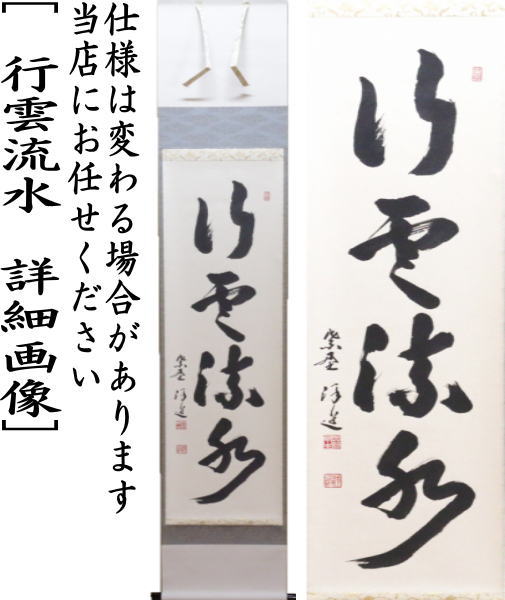 仕様は変わる場合があります
当店にお任せください
[ 行雲流水 詳細画像 ]
行雲流水
行雲流水